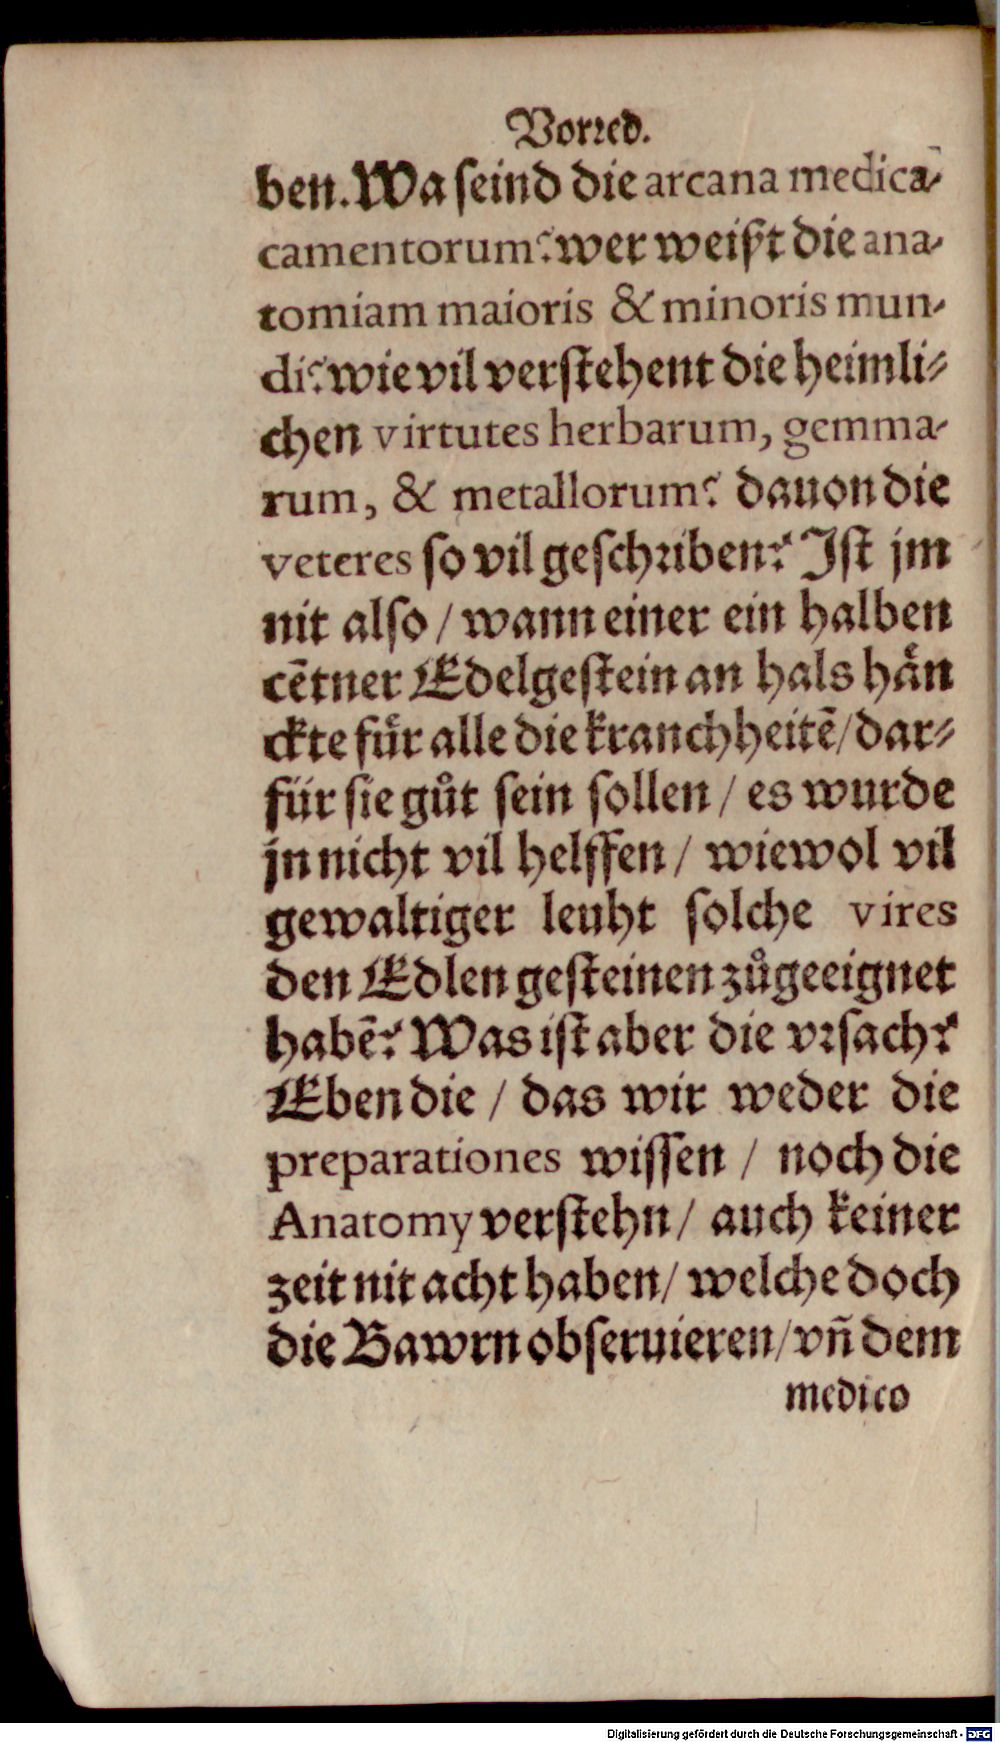 Vorꝛed.
ben. Wa ſeind die arcana medica-
camentorum? wer weiſʒt die ana-
tomiam maioris & minoris mun-
di? wie vil verſtehent die heimli⸗
chen virtutes herbarum, gemma-
rum, & metallorum? dauon die
veteres ſo vil geſchꝛiben? Iſt jm
nit alſo / wann einer ein halben
cẽtner Edelgeſtein an hals haͤn
ckte fuͤr alle die kranchheitẽ / dar⸗
für ſie guͦt ſein ſollen / es wurde
jn nicht vil helffen / wiewol vil
gewaltiger leuht ſolche vires
den Edlen geſteinen zuͦgeeignet
habẽ? Was iſt aber die vꝛſach?
Eben die / das wir weder die
preparationes wiſſen / noch die
Anatomy verſtehn / auch keiner
zeit nit acht haben / welche doch
die Bawrn obſeruieren / vñ dem
medico
Digitalisierung gefördert durch die Deutsche Forschungsgemeinschaft - DFG